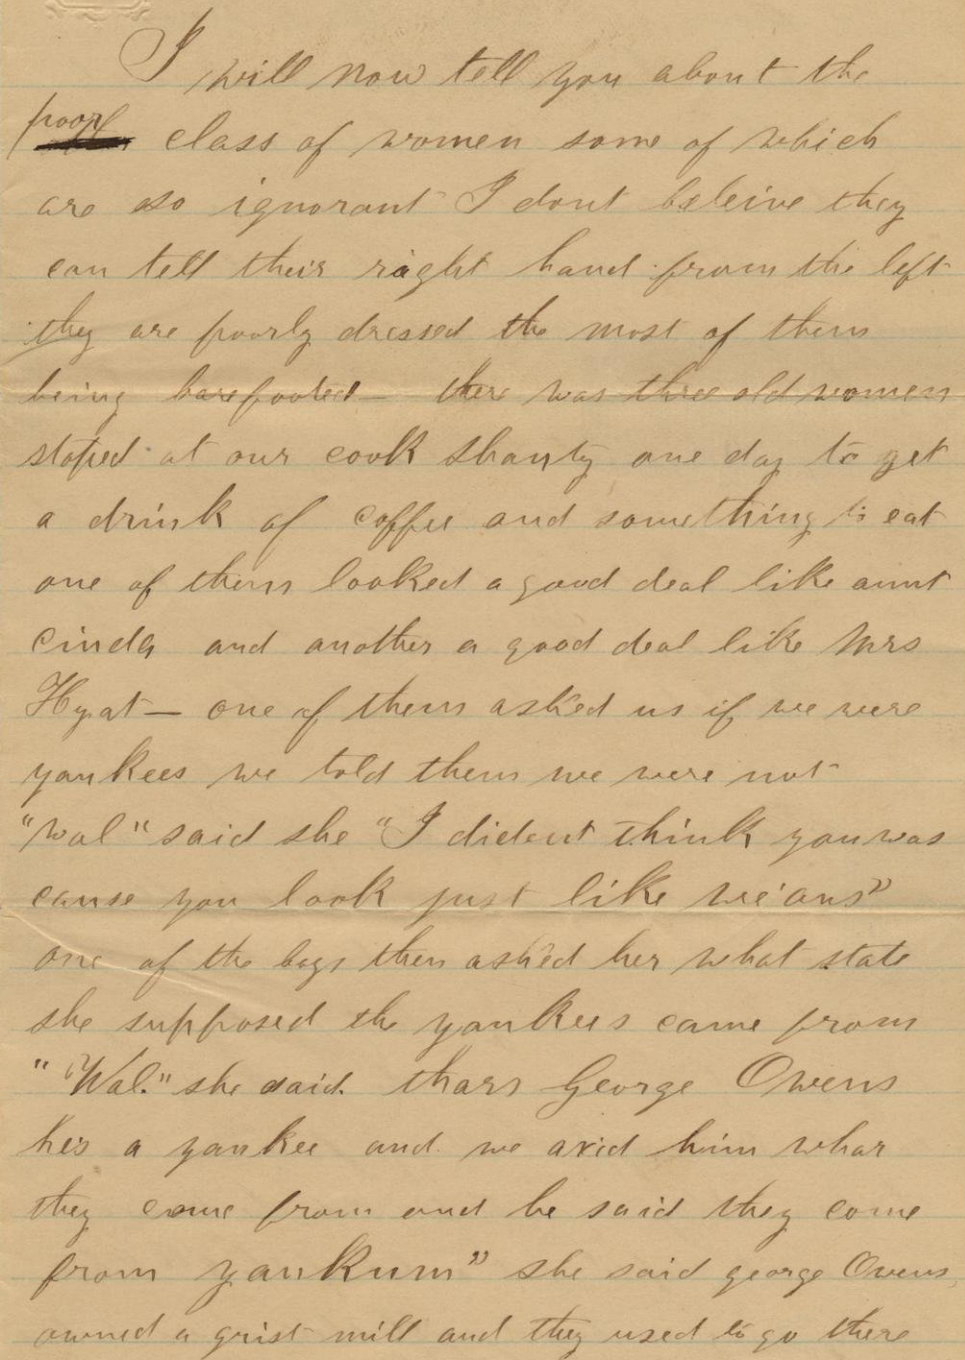 I will now tell you about the
poor class of women some of which
are so ignorant I dont beleive they
can tell their right hand from the left
they are poorly dressed the most of them
being barefooted — there was three old women
stoped at our cook shanty one day to get
a drink of coffee and something to eat
one of them looked a good deal like aunt
cinda and another a good deal like Mrs
Hyat — one of them asked us if we were
yankees we told them we were not
"Wal" said she "I dident think you was
cause you look just like we'ans"
one of the boys then asked her what state
she supposed the yankees came from
"Wal." she said. thars George Owens
hes a yankee and we axid him whar
they come from and he said they come
from yankum" she said george Owens
owned a grist mill and they used to go there